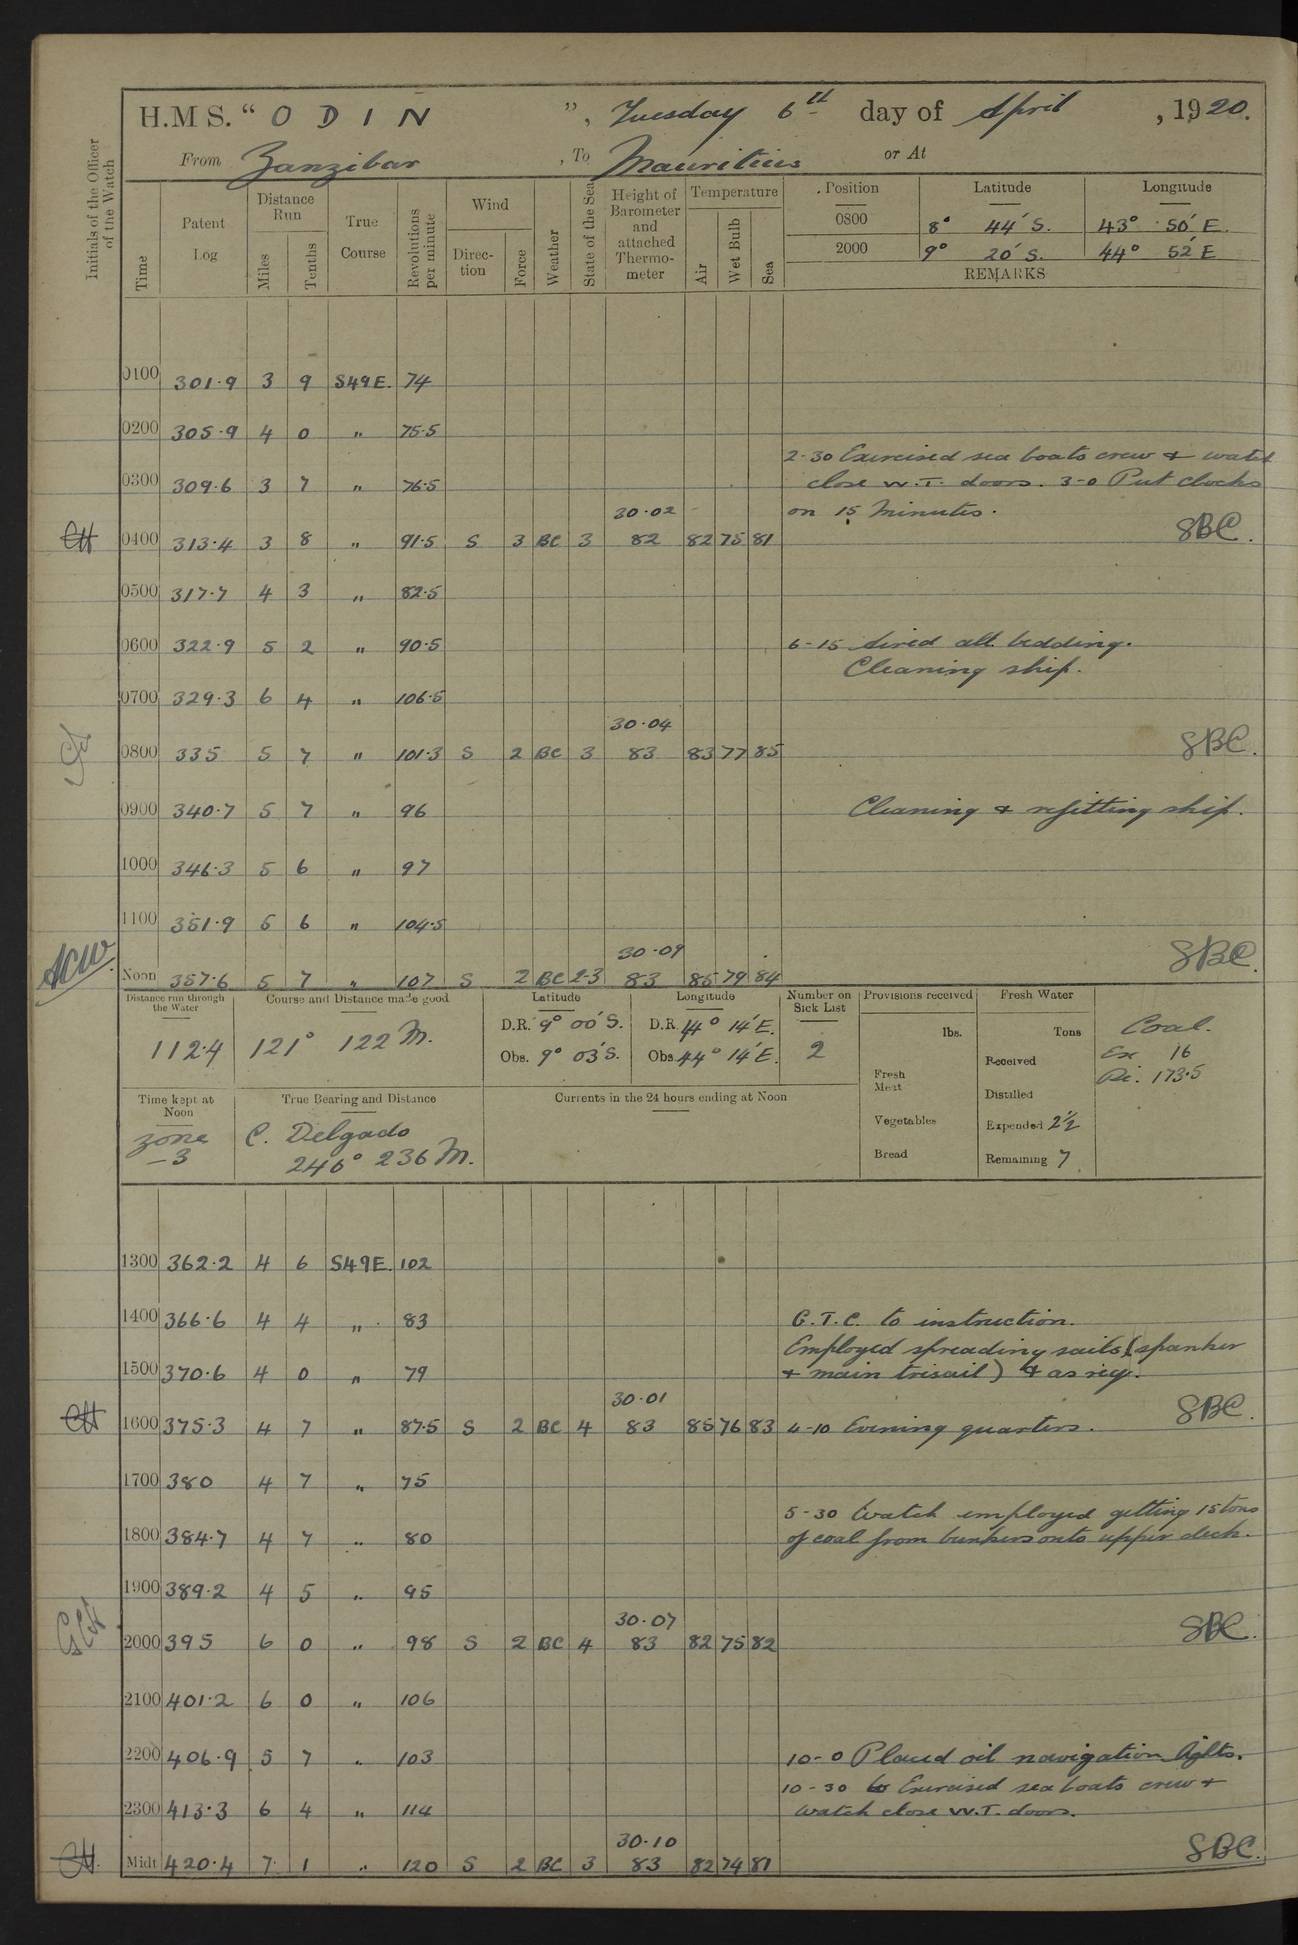 H.M S. “ O D I N ”, Tuesday 6th day of April, 1920.
From Zanzibar, To Mauritius or At
Initials of the Officer of the Watch
Time
Patent Log
Distance Run
Miles
Tenths
True Course
Revolutions per minute
Wind
Direction
Force
Weather
State of the Sea
Height of Barometer and attached Thermometer
Temperature
Air
Wet Bulb
Sea
Position Latitude Longitude
0800 8° 44′ S. 43° 50′ E.
2000 9° 20′ S. 44° 52′ E
REMARKS
0100 301·9 3 9 S49E. 74
0200 305·9 4 0 " 75·5
2-30 Exercised sea boats crew & watch
0300 309·6 3 7 " 76·5 close W.T. doors. 3-0 Put clocks
30·02 on 15 Minutes.
0400 313·4 3 8 " 91·5 S 3 BC 3 82 82 75 81 SBC.
0500 317·7 4 3 " 82·5
0600 322·9 5 2 " 90·5 6-15 Aired all bedding.
Cleaning ship.
0700 329·3 6 4 " 106·5
30·04
0800 335 5 7 " 101·3 S 2 BC 3 83 83 77 85 SBC.
0900 340·7 5 7 " 96 Cleaning & refitting ship.
1000 346·3 5 6 " 97
1100 351·9 5 6 " 104·5
30·09
ACW Noon 357·6 5 7 " 107 S 2 BC 2-3 83 85 79 84 SBC.
Distance run through the Water
112·4
Course and Distance made good
121° 122 M.
Latitude
D.R. 9° 00′ S.
Obs. 9° 03′ S.
Longitude
D.R. 44° 14′ E.
Obs. 44° 14′ E.
Number on Sick List
2
Provisions received
lbs.
Fresh Meat
Vegetables
Bread
Fresh Water
Tons
Received
Distilled
Expended 2½
Remaining 7
Coal.
Ex 16
Re. 173·5
Time kept at Noon
zone
-3
True Bearing and Distance
C. Delgado
246° 236 M.
Currents in the 24 hours ending at Noon
1300 362·2 4 6 S49E. 102
1400 366·6 4 4 " 83 G.T.C. to instruction.
Employed spreading sails (spanker
1500 370·6 4 0 " 79 & main trisail) & as req.
30·01
1600 375·3 4 7 " 87·5 S 2 BC 4 83 85 76 83 4-10 Evening quarters. SBC.
1700 380 4 7 " 75
5-30 Watch employed getting 15 tons
1800 384·7 4 7 " 80 of coal from bunkers onto upper deck.
1900 389·2 4 5 " 95
30·07
2000 395 6 0 " 98 S 2 BC 4 83 82 75 82 SBC.
2100 401·2 6 0 " 106
2200 406·9 5 7 " 103 10-0 Placed oil navigation lights.
10-30 Exercised sea boats crew &
2300 413·3 6 4 " 114 watch close W.T. doors.
30·10
Midt 420·4 7 1 " 120 S 2 BC 3 83 82 74 81 SBC.